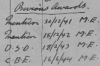 Previous Awards.
Mention 16/2/41 M.E.
Mention 8/7/41 M.E.
D.S.O. 18/2/43 M.E.
C.B.E. 18/2/44 M.E.